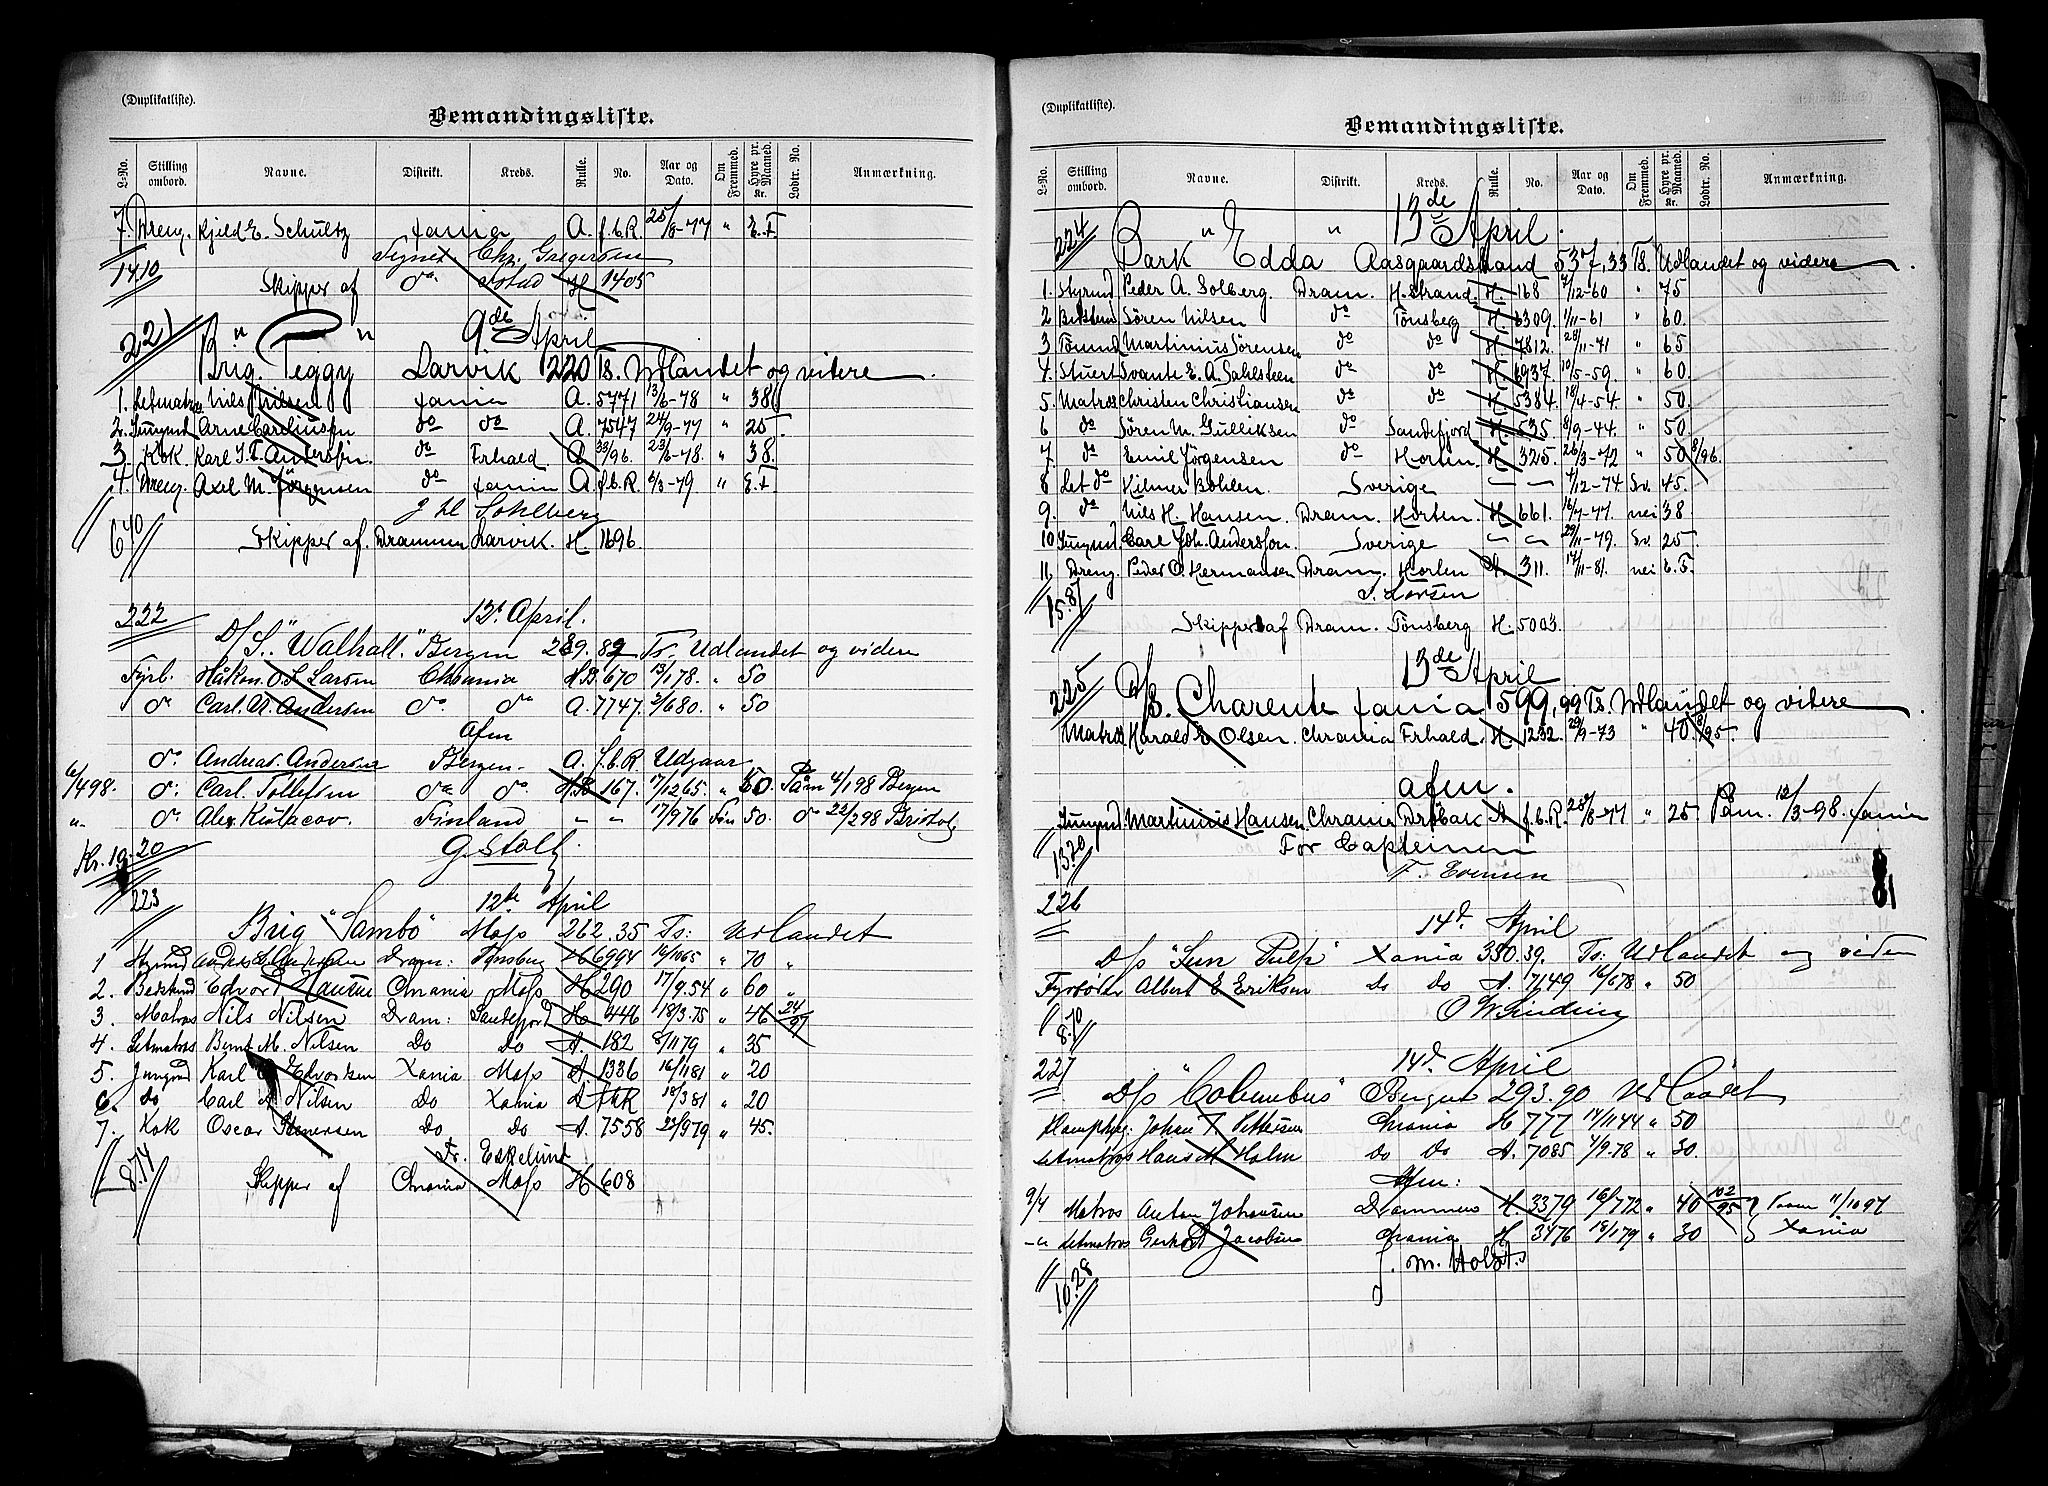 (Duplikatliste).
Bemandingsliste.
L-No. Stilling ombord. Navne. Distrikt. Kreds. Rulle. No. Aar og Dato. Om Fremmed. Hyre pr. Maaned. Kr. Lodtr. No. Anmærkning.
7. Dreng. Kjeld E. Schultz Xania A. f.b.R. 25/8-77 " E.F.
14 10 Chr. Gregersen
Skipper af do H 1405
221 " " 9de April
Brig. Peggy Larvik 220 Ts. Udlandet og videre
1. Letmatros Nils Nilsen Xania A. 5771 13/6-78 " 38
2. Jungmd Arne Careliussen do do A. 7547 24/9-77 " 25
3. Kok. Karl J. F. Andersen. do Frhald. A 33/96. 23/6-78. " 38.
4. Dreng. Axel M. Jörgensen do Xania A f.b.R. 6/3-79 " E.F.
Sohlberg
6 40 Skipper af. Drammen Larvik. H. 1696.
222 12t April.
D/S. "Walhall". Bergen 289.82 Ts. Udlandet og videre
Fyrb. Håkon. O. S. Larsen Chrania H.B. 670 13/178. " 50
do Carl. A. Andersen do. do A. 7747. 2/680. " 50
Afm
do. Andreas. Andersen Bergen. A. f.b.R Udgaar
6/498. do. Carl. Tollefsen do do H.B 167. 17/1265. " 50. Paam 4/198 Bergen
" do. Alex. Finland " " 17/976 Fin 50. do 22/298 Bristol
Kr. 19.20 G. Stoltz.
223 12te April
Brig "Sambo" Moss 262.35 Ts: Udlandet
1 Styrmd Dram: Tønsberg H 6994 16/1065 " 70 "
2. Bedstmd Edvor Hansen Chrania Moss H 290 17/9.54 " 60 "
3. Matros Nils Nilsen Dram: Sandefjord H 446 18/3.75 " 46 24/97
4. Letmatros Bernt M. Nilsen Do Do A. 182 8/1179 " 35
5. Jungmd Karl Edvorksen Xania Moss A. 1336 16/1181 " 20
6. do Carl A. Nilsen Do Xania A fbR 18/381 " 20
7. Kok Oscar Stenersen Do Do A. 7558 22/979 " 45.
Fr. Eskelund
8.74 Skipper af Chrania Moss H 608
(Duplikatliste).
Bemandingsliste.
L-No. Stilling ombord. Navne. Distrikt. Kreds. Rulle. No. Aar og Dato. Om Fremmed. Hyre pr. Maaned. Kr. Lodtr. No. Anmærkning.
224 " " 13de April.
Bark Edda Aasgaardstrand 537,33 Ts. Udlandet og videre
1. Styrmd Peder A. Solberg. Dram. H.strand H. 168 7/12-60 " 75
2 Bestm Sören Nilsen do Tönsberg H. 6309. 1/11-61 " 60.
3 Tömmd Martinius Sörensen do do H. 7812. 28/11-71 " 65
4. Stuert Svante E. A. Sahlsteen do do H. 6937. 10/5-59. " 60.
5. Matros Christen Christiansen do do H. 5384. 18/4-54. " 50.
6 do Sören M. Gulliksen do Sandefjord H. 535. 8/9-44. " 50.
7. do Emil Jörgensen do Horten. H. 325. 26/3-72 " 50 8/96.
8 Let do Hilmer Bohlen. Sverige — — 7/12-74. Sv. 45.
9. do Nils H. Hansen. Dram. Horten. H. 661. 16/7-77. nei 38
10 Jungmd Carl Joh. Andersson. Sverige — — 29/11-79. Sv. 25
11 Dreng. Peder O. Hermansen Dram. Horten A. 311. 14/11-81. nei E.F.
15.87 J. Larsen
Skipper af Dram. Tönsberg H. 5003.
225 13de April
D/S. Charente Xania 599,99 Ts. Udlandet og videre
Matros Harald E. Olsen. Chrania Frhald. H. 1232. 29/9-73 " 40. 8/95.
afm.
Jungmd Martinius Hansen. Chrania Dröbak A f.b.R. 28/8-77 " 25. Paam. 12/3-98. Xania
13.70 For Capteinen
F. Evensen
226 14d April
D/S "Sun Pulp" Xania 350.39. Ts: Udlandet og viden
Fyrbøder Albert E Eriksen do do A. 7149 16/678 " 50
8.70 O W Linding
227 14d April
D/S "Columbus" Bergen 293.90 Udlandet
Johan Pettersen Chrania H 777 14/1144 " 50
Letmatros Hans M Holm do do A. 7085 4/9.78 " 30.
Afm:
9/4 Matros Anton Johansen Drammen H. 3379 16/772 " 40 102/95 } Paam 11/1097
-"- Letmatros Gerhard Jacobsen Chrania H 3476 18/179 " 30 } Xania
J. M. Holst.
16.28